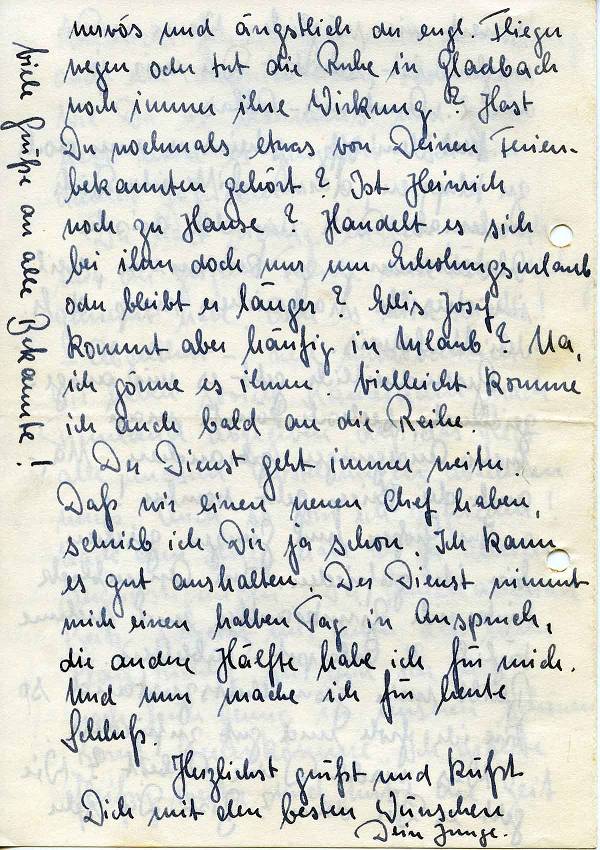 nervös und ängstlich der engl. Flieger
wegen oder tut die Ruhe in Gladbach
noch immer ihre Wirkung? Hast
Du nochmals etwas von Deinen Ferien-
bekannten gehört? Ist Heinrich
noch zu Hause? Handelt es sich
bei ihm doch nur um Erholungsurlaub
oder bleibt er länger? Josef
kommt aber häufig in Urlaub? Na,
ich gönne es ihnen. Vielleicht komme
ich auch bald an die Reihe.
Der Dienst geht immer weiter.
Daß wir einen neuen Chef haben,
schrieb ich Dir ja schon. Ich kann
es gut aushalten. Der Dienst nimmt
mich einen halben Tag in Anspruch,
die andere Hälfte habe ich für mich.
Und nun mache ich für heute
Schluß.
Herzlichst grüßt und küßt
Dich mit den besten Wünschen
Dein Junge.
Viele Grüße an alle Bekannte!